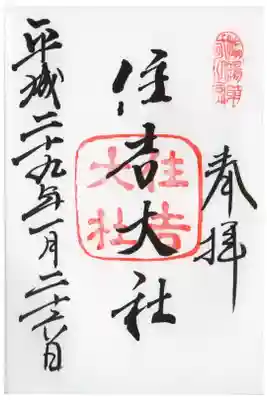 奉拝
住吉大社
住吉大社
平成二十九年一月二十六日